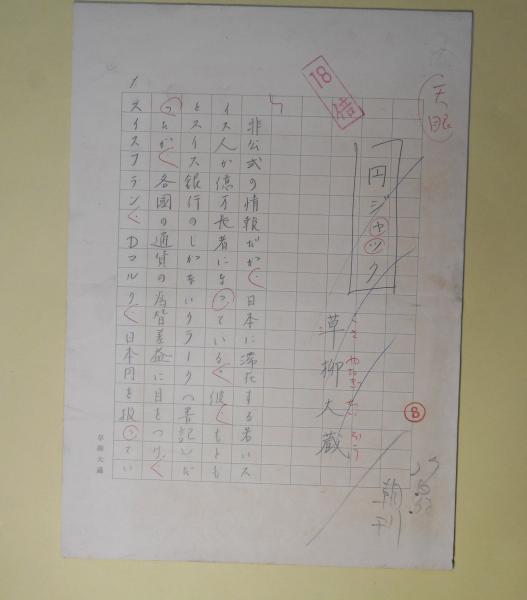 天眼
18
円ジャック
草柳大蔵
くさやなぎだいぞう
B
朝刊
非公式の情報だが、日本に滞在する若いス
イス人が億万長者になっている。彼、もとも
とスイス銀行のしがないクラーク(書記)だ
ったが、各国の通貨の為替差益に目をつけ、
スイスフラン、Dマルク、日本円を扱ってい
早稲大蔵